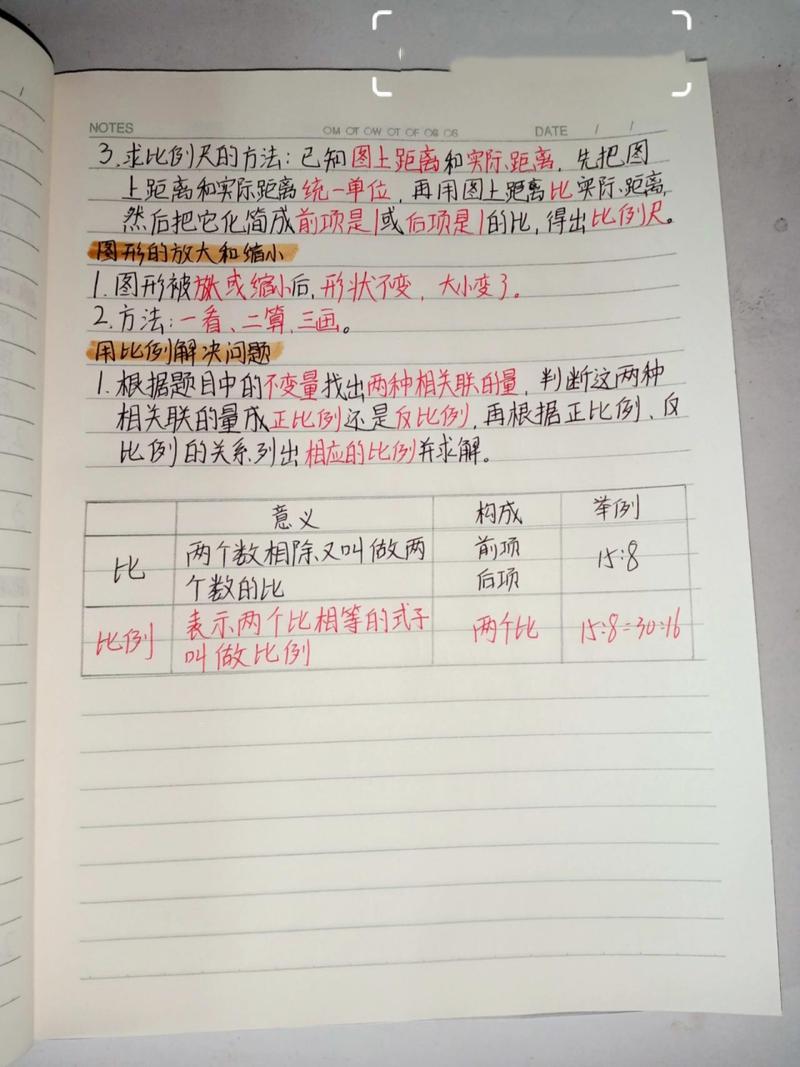 NOTES
DATE / /
3.求比例尺的方法:已知图上距离和实际距离,先把图
上距离和实际距离统一单位,再用图上距离比实际距离,
然后把它化简成前项是1或后项是1的比,得出比例尺。
图形的放大和缩小
1.图形被放大或缩小后,形状不变,大小变了。
2.方法:一看、二算、三画。
用比例解决问题
1.根据题目中的不变量找出两种相关联的量,判断这两种
相关联的量成正比例还是反比例,再根据正比例、反
比例的关系列出相应的比例并求解。
意义 构成 举例
比 两个数相除又叫做两个数的比 前项 后项 15:8
比例 表示两个比相等的式子叫做比例 两个比 15:8=30:16